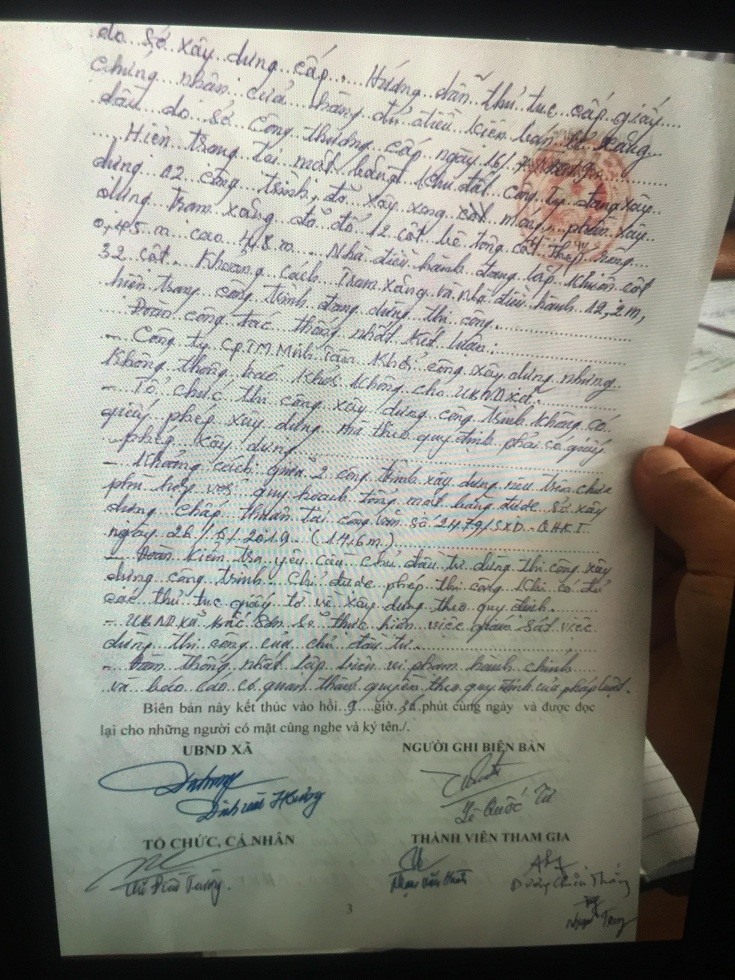 do sở xây dựng cấp. Hướng dẫn thủ tục cấp giấy
chứng nhận cửa hàng đủ điều kiện bán lẻ xăng
dầu do sở Công thương cấp ngày 16/7/2019.
Hiện trạng tại mặt bằng khu đất công ty đang xây
dựng 02 công trình, đã xây xong móng, phần xây
dựng trạm xăng đã đổ 12 cột bê tông cốt thép rộng
0,45 m cao 4,8 m. Nhà điều hành đang lắp khuôn cột
32 cột. Khoảng cách Trạm xăng và nhà điều hành 12,2m,
hiện trạng công trình đang dừng thi công.
Đoàn công tác thống nhất kết luận:
- Công ty CP.TM Minh Tâm Khởi công xây dựng nhưng
không thông báo khởi công cho UBND xã.
- Tổ chức thi công xây dựng công trình không có
giấy phép xây dựng mà theo quy định phải có giấy
phép xây dựng
- Khoảng cách giữa 2 công trình xây dựng nêu trên chưa
phù hợp với quy hoạch tổng mặt bằng được sở xây
dựng chấp thuận tại công văn số 2479/SXD-QHKT
ngày 28/5/2019 (17,6m)
- Đoàn kiểm tra yêu cầu chủ đầu tư dừng thi công xây
dựng công trình. Chỉ được phép thi công khi có đủ
các thủ tục giấy tờ về xây dựng theo quy định.
- UBND xã Bắc Sơn sẽ thực hiện việc giám sát việc
dừng thi công của chủ đầu tư.
- Đoàn thống nhất lập biên vi phạm hành chính
và báo cáo cơ quan thẩm quyền theo quy định của pháp luật.
Biên bản này kết thúc vào hồi 9 giờ 30 phút cùng ngày và được đọc
lại cho những người có mặt cùng nghe và ký tên./.
UBND XÃ NGƯỜI GHI BIÊN BẢN
Đinh Hưởng Lê Quốc Tư
TỔ CHỨC, CÁ NHÂN THÀNH VIÊN THAM GIA
Phạm Văn Dương Chiến Thắng
3